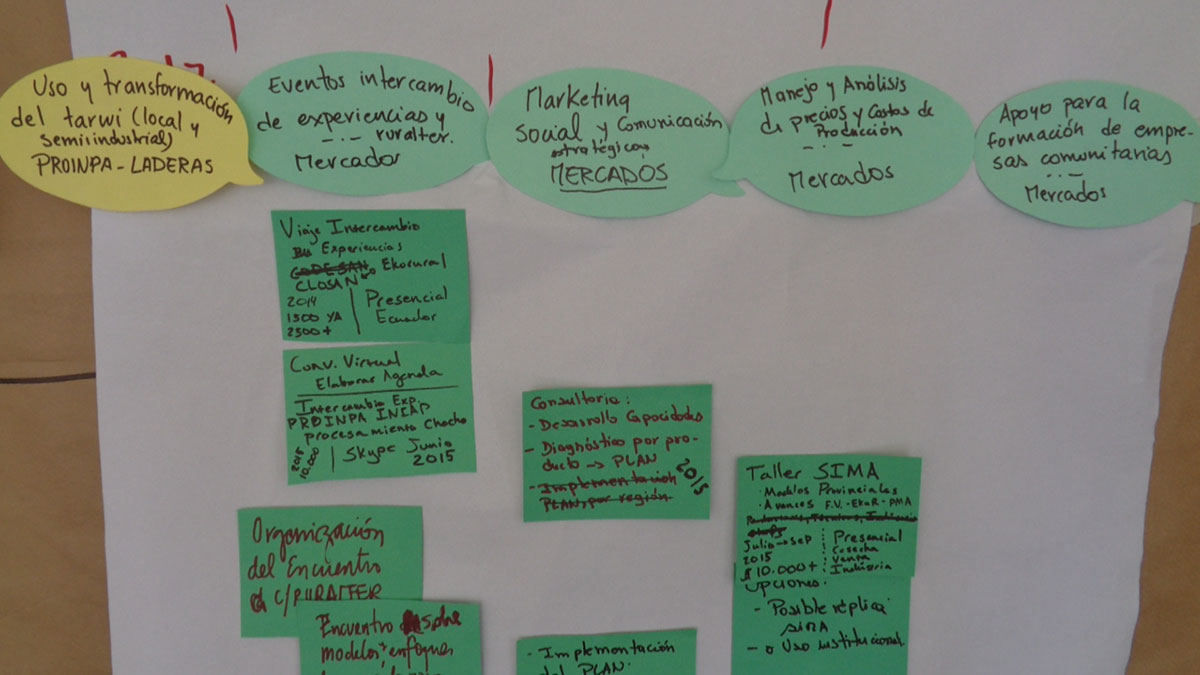 Uso y transformación
del tarwi (local y
semiindustrial)
PROINPA - LADERAS
Eventos intercambio
de experiencias y
ruralter.
Mercados
Marketing
social y Comunicación
estratégica
MERCADOS
Manejo y Análisis
de precios y Costos de
Producción
Mercados
Apoyo para la
formación de empre-
sas comunitarias
Mercados
Viaje Intercambio
Experiencias
Ekorural
CLOSAN
2014
1500 YA
2500+
Presencial
Ecuador
Conv. Virtual
Elaborar Agenda
Intercambio Exp.
PROINPA INIAP
Procesamiento Chocho
2015
10.000
Skype Junio
2015
Organización
del Encuentro
C/RURALTER
Encuentro sobre
modelos, enfoques
Consultoria:
- Desarrollo Capacidades
- Diagnóstico por pro-
ducto → PLAN
- Implementación
PLAN, por región
2015
- Implementación
del PLAN.
Taller SIMA
· Modelos Provinciales
· Avances F.V. - EkuR - PMA
Julio → Sep
2015
$ 10.000+
: Presencial
: Cosecha
: Venta
: Industria
Opciones:
- Posible réplica
SIMA
- o Uso institucional